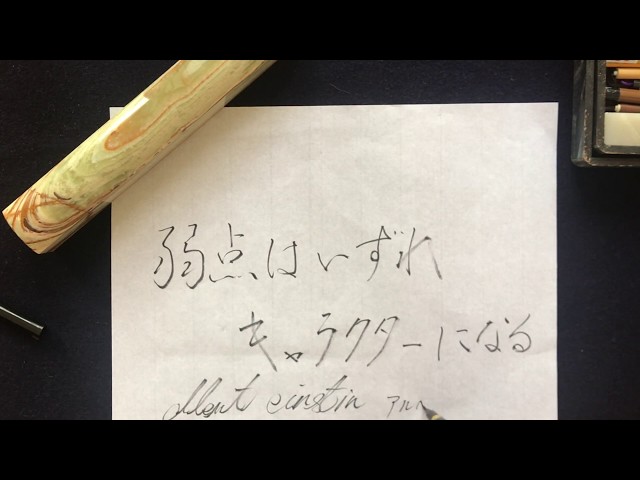 弱点はいずれ
キャラクターになる
Albert einstin アルベ